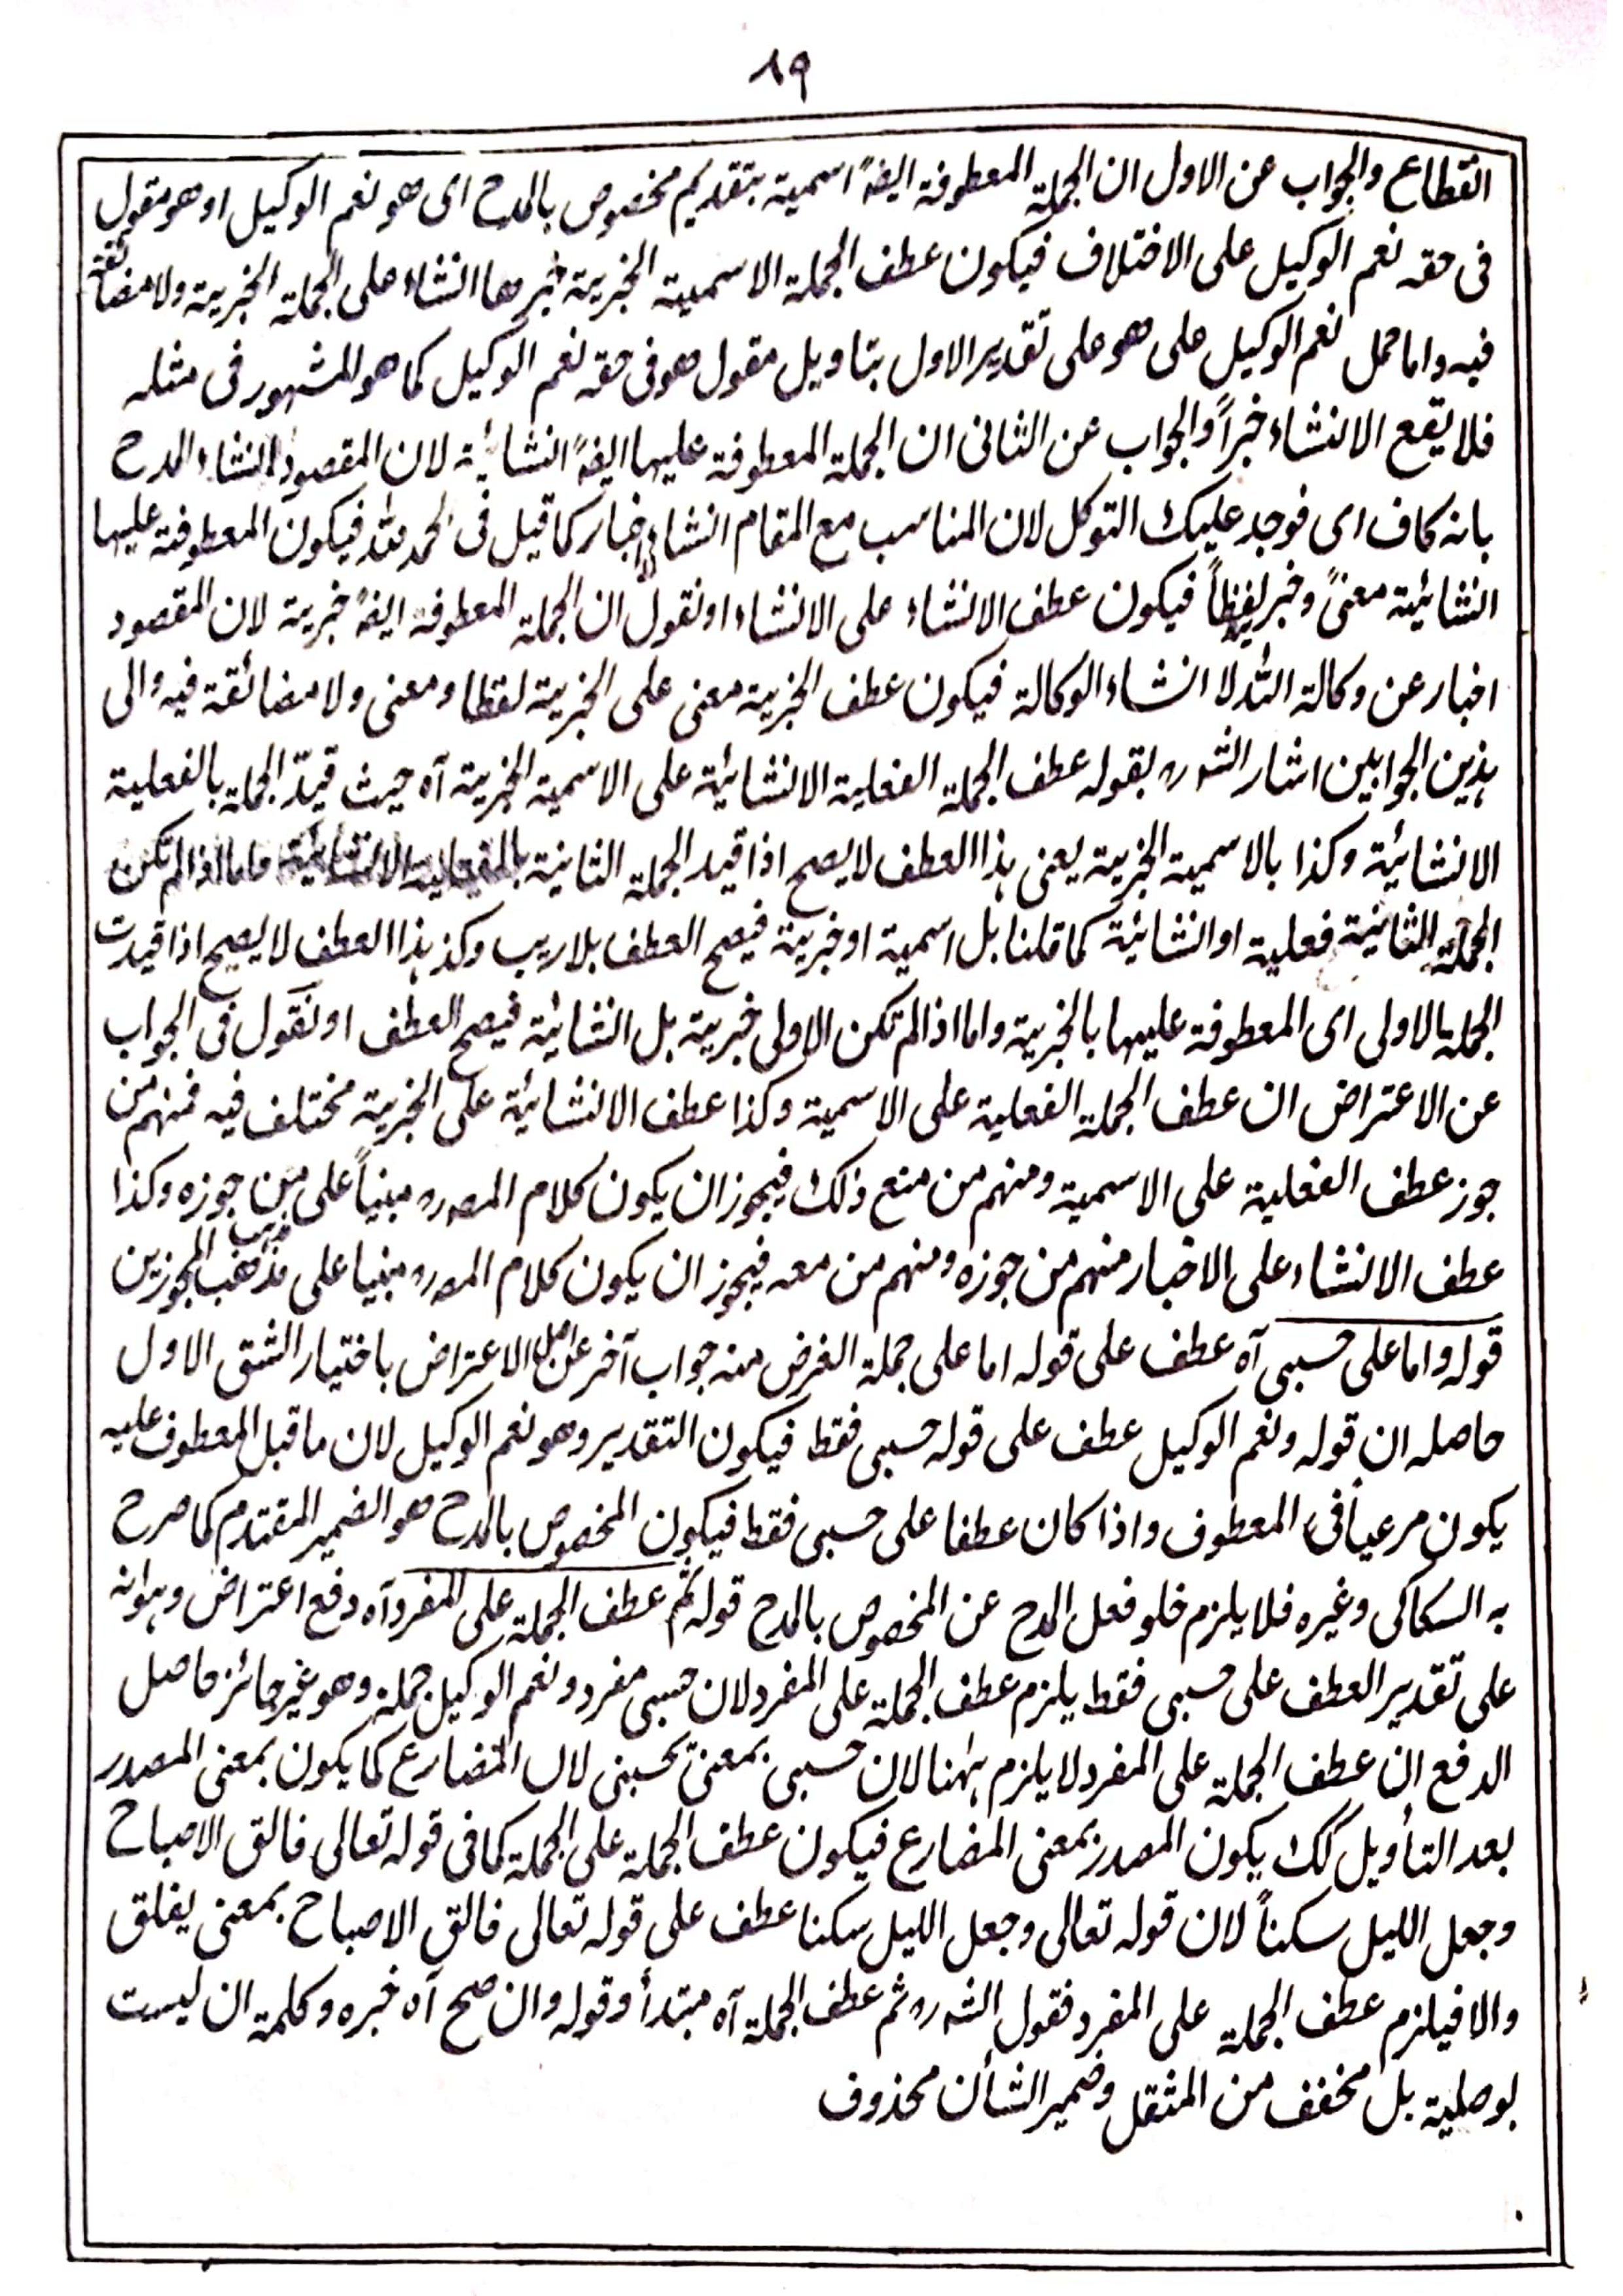 ٨٩
انقطاع والجواب عن الاول ان الجملة المعطوفة ايضہً اسمية بتقديم مخصوص بالمدح اى هو نعم الوكيل او هو مقول
فى حقه نعم الوكيل على الاختلاف فيكون عطف الجملة الاسمية الخبرية خبرها انشاء على الجملة الخبرية ولا مضائقة
فيه واما حمل نعم الوكيل على هو على تقدير الاول بتاويل مقول هو فى حقه نعم الوكيل كما هو المشهور فى مثله
فلا يقع الانشاء خبراً والجواب عن الثانى ان الجملة المعطوفة عليها ايضہً انشائية لان المقصود انشاء المدح
بانه كاف اى فوجد عليك التوكل لان المناسب مع المقام انشاء لا اخبار كما قيل فى الحمد لله فيكون المعطوفة عليها
انشائية معنىً وخبر لفظاً فيكون عطف الانشاء على الانشاء او نقول ان الجملة المعطوفة ايضہً خبرية لان المقصود
اخبار عن وكالة الله لا انشاء الوكالة فيكون عطف الخبرية معنى على الخبرية لفظا ومعنى ولا مضائقة فيه والى
ہذين الجوابين اشار الشہ رہ بقوله عطف الجملة الفعلية الانشائية على الاسمية الخبرية آه حيث قيدّ الجملة بالفعلية
الانشائية وكذا بالاسمية الخبرية يعنى ہذا العطف لا يصح اذا قيد الجملة الثانية بالفعلية الانشائية واما اذا لم تكن
الجملة الثانية فعلية او انشائية كما قلنا بل اسمية او خبرية فيصح العطف بلا ريب وكذ ہذا العطف لا يصح اذا قيدت
الجملة الاولى اى المعطوفة عليها بالخبرية واما اذا لم تكن الاولى خبرية بل انشائية فيصح العطف او نقول فى الجواب
عن الاعتراض ان عطف الجملة الفعلية على الاسمية وكذا عطف الانشائية على الخبرية مختلف فيه فمنهم من
جوز عطف الفعلية على الاسمية ومنهم من منع ذلك فيجوز ان يكون كلام المصہ رہ مبنياً على من جوزه وكذا
عطف الانشاء على الاخبار منهم من جوزه ومنهم من معه فيجوز ان يكون كلام المصہ رہ مبنيا على مذهب المجوزين
قوله واما على حسبى آه عطف على قوله اما على جملة الغرض منه جواب آخر عن اصل الاعتراض باختيار الشق الاول
حاصله ان قوله ونعم الوكيل عطف على قوله حسبى فقط فيكون التقدير وهو نعم الوكيل لان ما قبل المعطوف عليه
يكون مرعياً فى المعطوف واذا كان عطفا على حسبى فقط فيكون المخصوص بالمدح هو الضمير المقتدم كما صرح
به السكاكى وغيره فلا يلزم خلو فعل المدح عن المخصوص بالمدح قوله ثم عطف الجملة على المفرد آه دفع اعتراض وہوانه
على تقدير العطف على حسبى فقط يلزم عطف الجملة على المفرد لان حسبى مفرد ونعم الوكيل جملة وهو غير جائز حاصل
الدفع ان عطف الجملة على المفرد لا يلزم ہٰہنا لان حسبى بمعنىٰ يحسبنى لان المضارع كما يكون بمعنى المصدر
بعد التأويل كك يكون المصدر بمعنى المضارع فيكون عطف الجملة على الجملة كما فى قوله تعالى فالق الاصباح
وجعل الليل سكناً لان قوله تعالى وجعل الليل سكنا عطف على قوله تعالى فالق الاصباح بمعنى يفلق
والا فيلزم عطف الجملة على المفرد فقول الشہ رہ ثم عطف الجملة آه مبتدأ وقوله وان صح آه خبره وكلمة ان ليست
بوصلية بل مخفف من المثقل وضمير الشأن محذوف